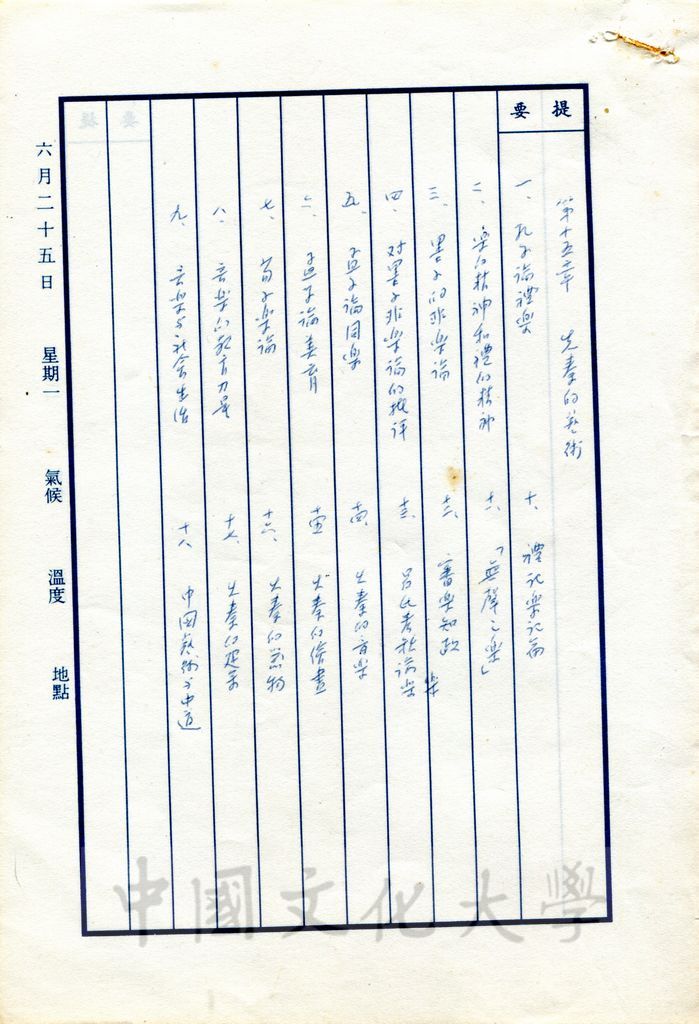 提要
第十五章 先秦的藝術
一、孔子論禮樂
二、樂的精神和禮的精神
三、墨子的非樂論
四、对墨子非樂論的批評
五、孟子論同樂
六、孟子論美育
七、荀子樂論
八、音樂的教育力量
九、音樂与社会生活
十、禮記樂記篇
十一、「無聲之樂」
十二、審樂知政
十三、呂氏春秋論樂
十四、先秦的音樂
十五、先秦的繪畫
十六、先秦的器物
十七、先秦的建築
十八、中國藝術与中道
六月二十五日 星期一 氣候 溫度 地點
中國文化大學